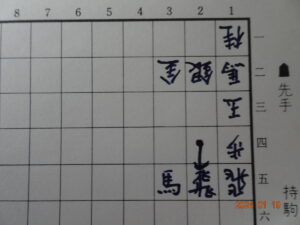 8 7 6 5 4 3 2 1
桂 一
金 銀 馬 二
玉 三
歩 四
馬 飛 五
六
☗先手
持駒